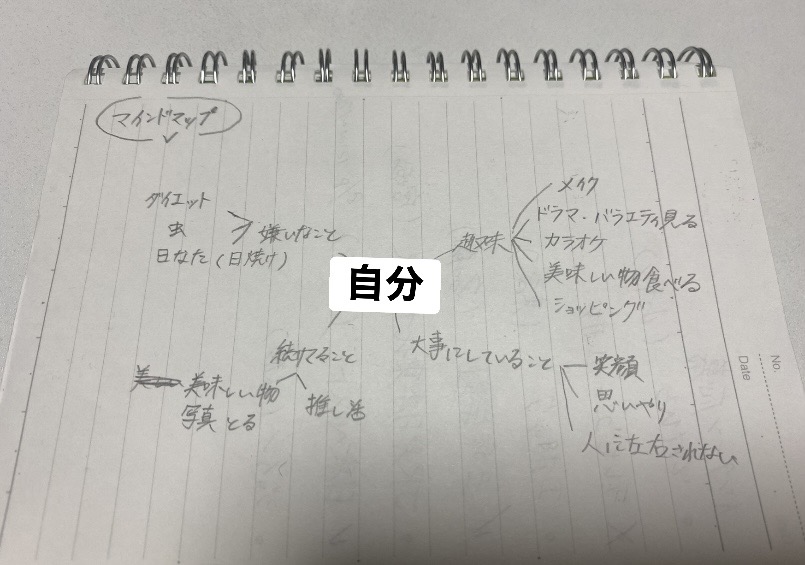 マインドマップ
ダイエット
虫
日なた(日焼け)
嫌いなこと
趣味
メイク
ドラマ・バラエティ見る
カラオケ
美味しい物食べる
ショッピング
自分
続けてること
美味しい物
写真とる
推し活
大事にしていること
笑顔
思いやり
人に左右されない
No.
Date